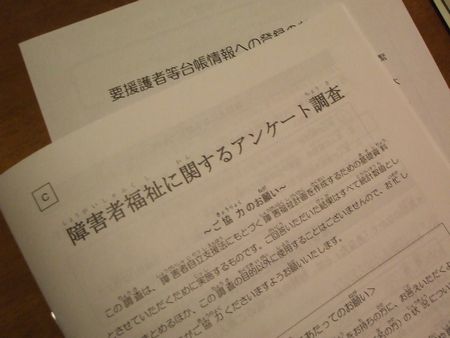 要援護者等台帳情報への登録の
C
障害者福祉に関するアンケート調査
～ご協力のお願い～
この調査は、障害者自立支援法にもとづく障害福祉計画を作成するための基礎資料
とさせていただくために実施するものです。ご回答いただいた結果はすべて統計数値とし
まとめるほか、この調査の目的以外に使用することはございませんので、お忙し
がご協力くださいますようお願いいたします。
あたってのお願い＞
をお持ちの方に、お答えいただくよ
の方）の状況について